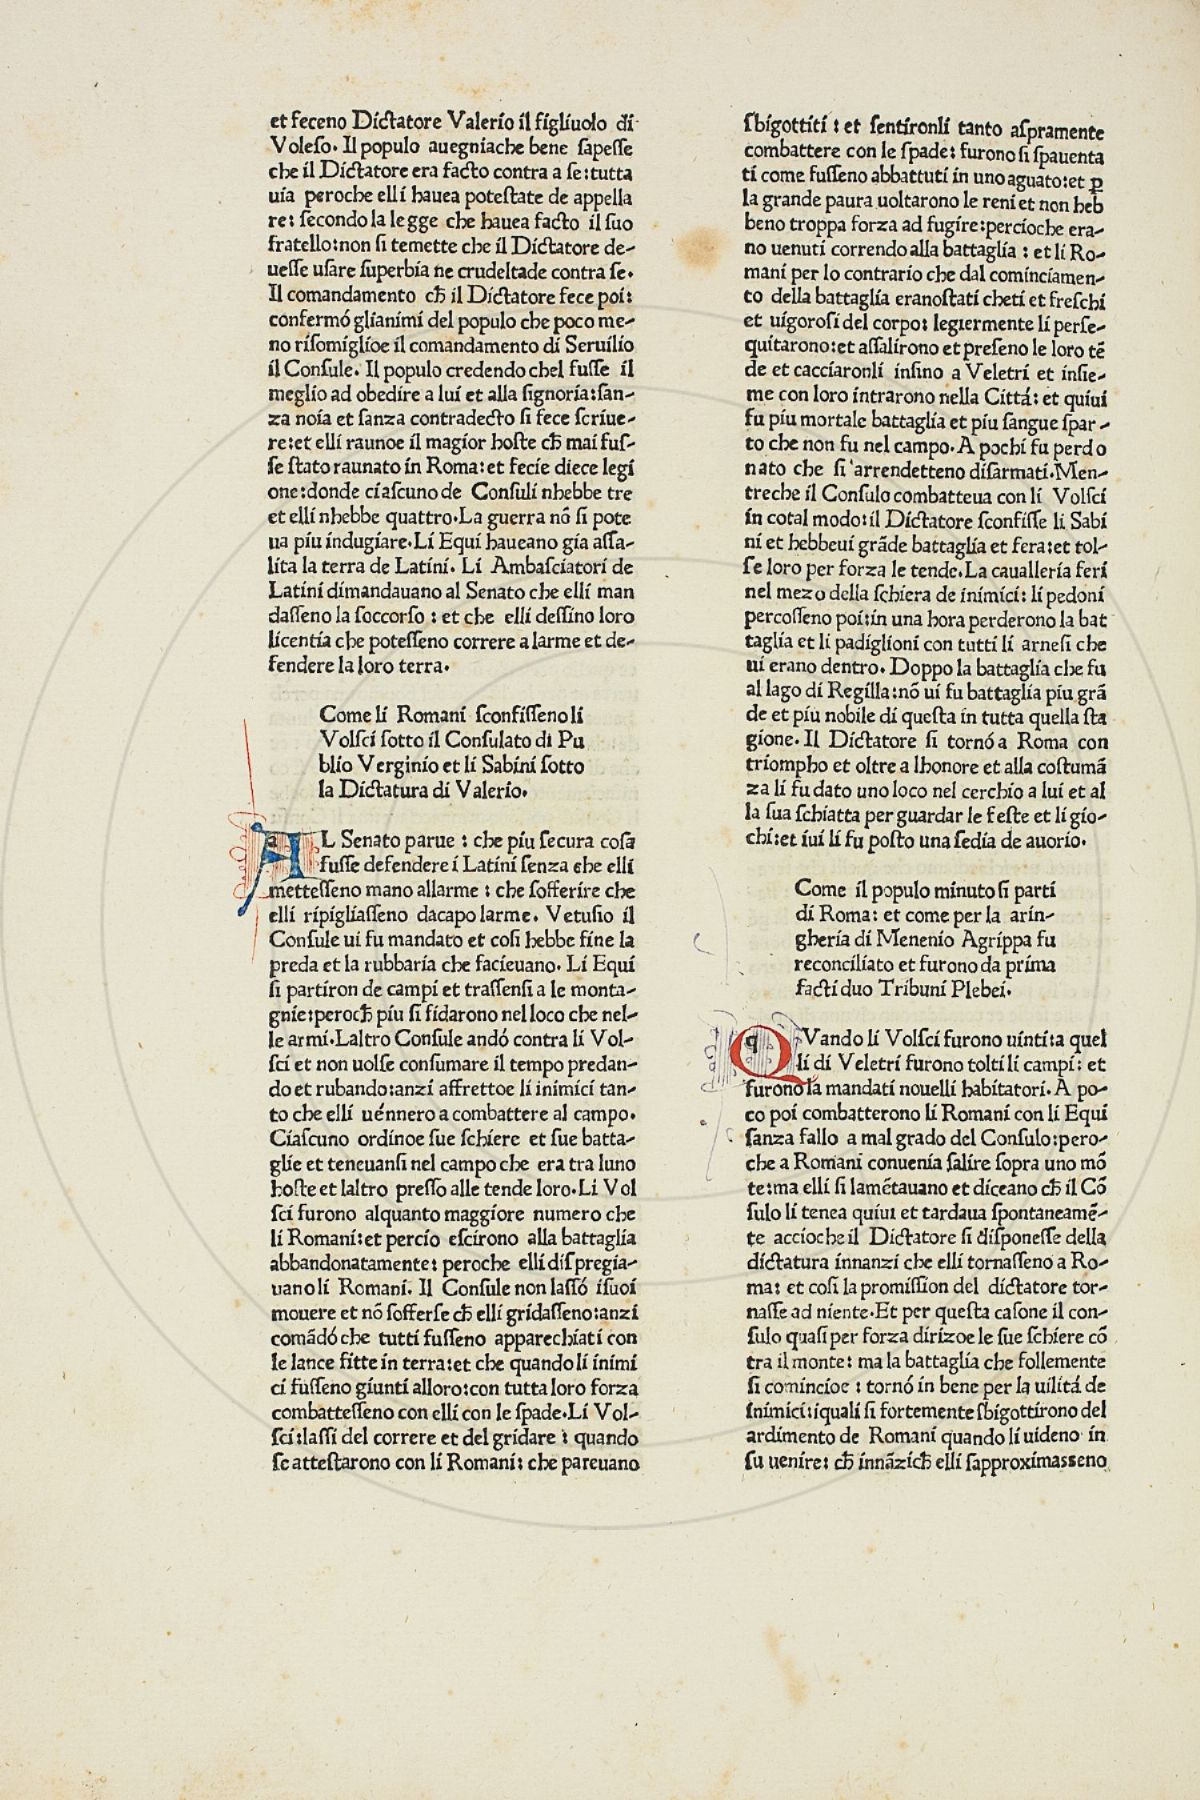 et feceno Dictatore Valerio il figliuolo di
Voleſo. Il populo auegniache bene ſapeſſe
che il Dictatore era facto contra a ſe:tutta
uia peroche elli hauea poteſtate de appella
re: ſecondo la legge che hauea facto il ſuo
fratello:non ſi temette che il Dictatore de-
ueſſe uſare ſuperbia ne crudeltade contra ſe.
Il comandamento cħ il Dictatore fece poi:
confermó glianimi del populo che poco me-
no riſomiglioe il comandamento di Seruilio
il Conſule. Il populo credendo chel fuſſe il
meglio ad obedire a lui et alla ſignoria:ſan-
za noia et ſanza contradecto ſi fece ſcriue-
re:et elli raunoe il magior hoſte cħ mai fuſ-
ſe ſtato raunato in Roma:et fecie diece legi
one:donde ciaſcuno de Conſuli nhebbe tre
et elli nhebbe quattro.La guerra nõ ſi pote
ua piu indugiare.Li Equi haueano gia aſſa-
lita la terra de Latini. Li Ambaſciatori de
Latini dimandauano al Senato che elli man
daſſeno la ſoccorſo : et che elli deſſino loro
licentia che poteſſeno correre a larme et de-
fendere la loro terra.
Come li Romani ſconfiſſeno li
Volſci ſotto il Conſulato di Pu
blio Verginio et li Sabini ſotto
la Dictatura di Valerio.
AL Senato parue : che piu ſecura coſa
fuſſe defendere i Latini ſenza che elli
metteſſeno mano allarme : che ſofferire che
elli ripigliaſſeno dacapo larme. Vetuſio il
Conſule ui fu mandato et coſi hebbe fine la
preda et la rubbaria che facieuano. Li Equi
ſi partiron de campi et traſſenſi a le monta-
gnie:perocħ piu ſi fidarono nel loco che nel-
le armi.Laltro Conſule andó contra li Vol-
ſci et non uolſe conſumare il tempo predan-
do et rubando:anzi affrettoe li inimici tan-
to che elli uénnero a combattere al campo.
Ciaſcuno ordinoe ſue ſchiere et ſue batta-
glie et teneuanſi nel campo che era tra luno
hoſte et laltro preſſo alle tende loro.Li Vol
ſci furono alquanto maggiore numero che
li Romani:et percio eſcirono alla battaglia
abbandonatamente: peroche elli diſpregia-
uano li Romani. Il Conſule non laſſó iſuoi
mouere et nõ ſofferſe cħ elli gridaſſeno:anzi
comãdó che tutti fuſſeno apparechiati con
le lance fitte in terra:et che quando li inimi
ci fuſſeno giunti alloro:con tutta loro forza
combatteſſeno con elli con le ſpade.Li Vol-
ſci:laſſi del correre et del gridare : quando
ſe atteſtarono con li Romani: che pareuano
ſbigottiti : et ſentironli tanto aſpramente
combattere con le ſpade: furono ſi ſpauenta
ti come fuſſeno abbattuti in uno aguato:et ꝑ
la grande paura uoltarono le reni et non heb
beno troppa forza ad fugire:percioche era-
no uenuti correndo alla battaglia : et li Ro-
mani per lo contrario che dal cominciamen-
to della battaglia eranoſtati cheti et freſchi
et uigoroſi del corpo: legiermente li perſe-
quitarono:et aſſalirono et preſeno le loro tẽ
de et cacciaronli inſino a Veletri et inſie-
me con loro intrarono nella Cittá: et quiui
fu piu mortale battaglia et piu ſangue ſpar-
to che non fu nel campo.A pochi fu perdo
nato che ſi arrendetteno diſarmati.Men-
treche il Conſulo combatteua con li Volſci
in cotal modo:il Dictatore ſconfiſſe li Sabi
ni et hebbeui grãde battaglia et fera:et tol-
ſe loro per forza le tende.La cauallería feri
nel mezo della ſchiera de inimici: li pedoni
percoſſeno poi:in una hora perderono la bat
taglia et li padiglioni con tutti li arneſi che
ui erano dentro. Doppo la battaglia che fu
al lago di Regilla:nõ ui fu battaglia piu grã
de et piu nobile di queſta in tutta quella ſta
gione. Il Dictatore ſi tornó a Roma con
triompho et oltre a lhonore et alla coſtumã
za li fu dato uno loco nel cerchio a lui et al
la ſua ſchiatta per guardar le feſte et li gio-
chi:et iui li fu poſto una ſedia de auorio.
Come il populo minuto ſi parti
di Roma: et come per la arin-
gheria di Menenio Agrippa fu
reconciliato et furono da prima
facti duo Tribuni Plebei.
QVando li Volſci furono uinti:a quel
li di Veletri furono tolti li campi: et
furono la mandati nouelli habitatori. A po-
co poi combatterono li Romani con li Equi
ſanza fallo a mal grado del Conſulo:pero-
che a Romani conuenia ſalire ſopra uno mõ
te:ma elli ſi lamẽtauano et diceano cħ il Cõ
ſulo li tenea quiui et tardaua ſpontaneamẽ-
te accioche il Dictatore ſi diſponeſſe della
dictatura innanzi che elli tornaſſeno a Ro-
ma: et coſi la promiſſion del dictatore tor-
naſſe ad niente.Et per queſta caſone il con-
ſulo quaſi per forza dirizoe le ſue ſchiere cõ
tra il monte: ma la battaglia che follemente
ſi comincioe : tornó in bene per la uilitá de
inimici:iquali ſi fortemente ſbigottirono del
ardimento de Romani quando li uideno in
ſu uenire: cħ innãzicħ elli ſapproximasseno